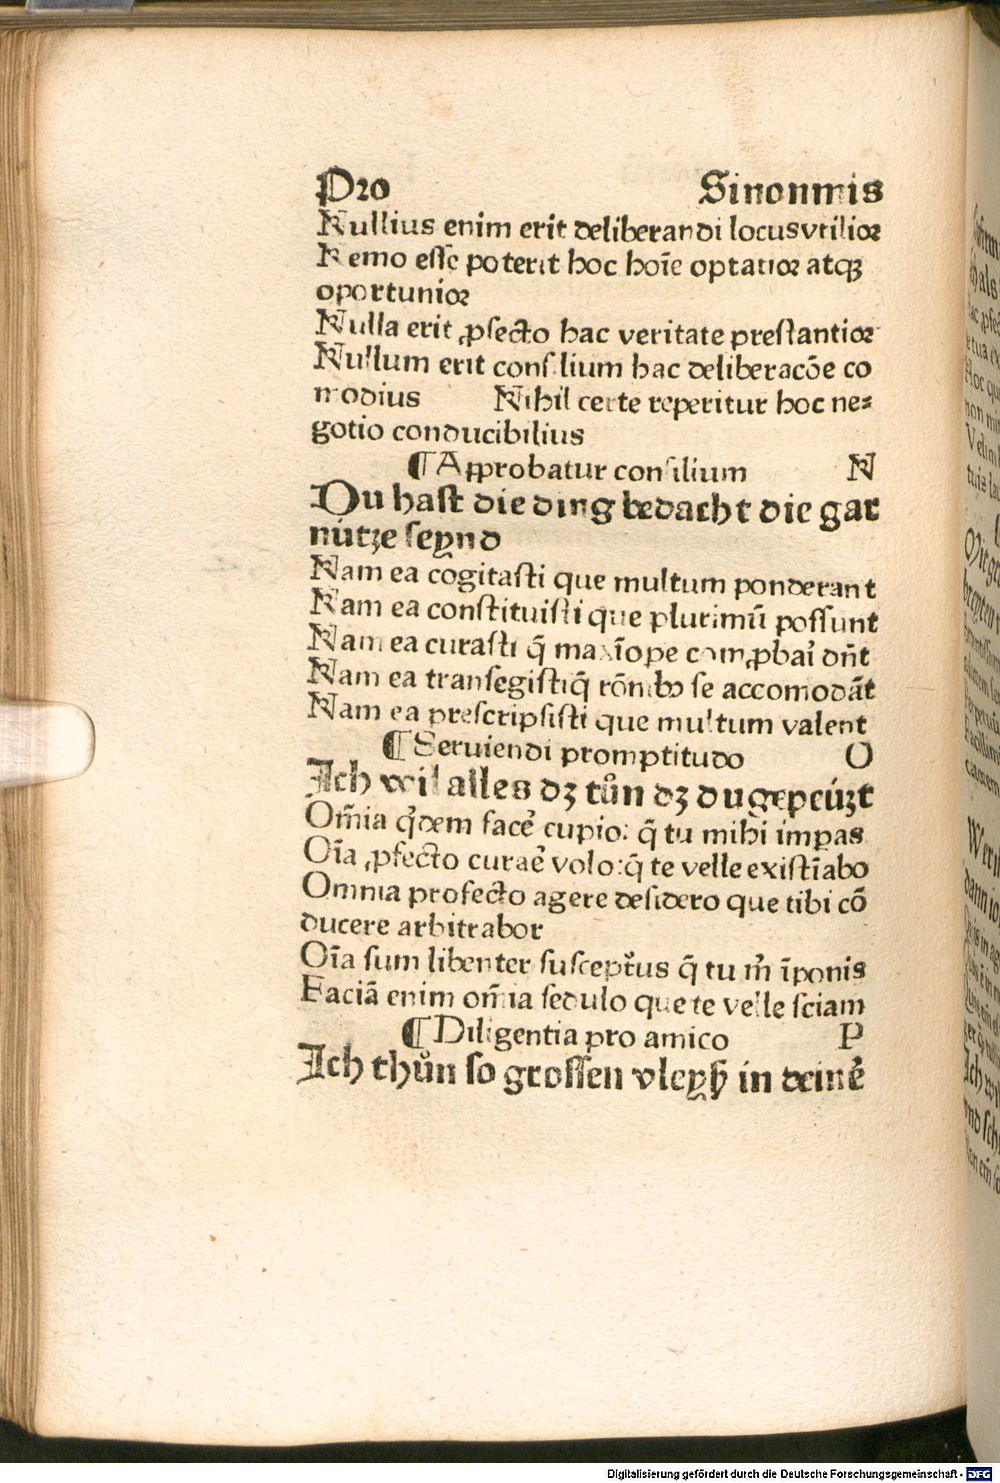 Pro Sinonmis
Nullius enim erit deliberandi locus vtilior
Nemo esse poterit hoc hoīe optatior atqꝫ
oportunior
Nulla erit ꝓfecto hac veritate prestantior
Nullum erit consilium hac deliberacōe co
modius Nihil certe reperitur hoc ne⸗
gotio conducibilius
¶ Approbatur consilium N
Du hast die ding bedacht die gar
nútze seynd
Nam ea cogitasti que multum ponderant
Nam ea constituisti que plurimū possunt
Nam ea curasti q̄ maxīope comꝓbari dn̄t
Nam ea transegisti q̄ rōnibꝫ se accomodāt
Nam ea prescripsisti que multum valent
¶ Seruiendi promptitudo O
Ich wil alles dz tůn dz du gepeúzt
Om̄ia q̇dem facē cupio: q̄ tu mihi imꝑas
Oīa ꝓfecto curaē volo: q̄ te velle existīabo
Omnia profecto agere desidero que tibi cō
ducere arbitrabor
Oīa sum libenter suscept̄us q̄ tu m̄ īponis
Faciā enim om̄ia sedulo que te velle sciam
¶ Diligentia pro amico P
Ich thůn so grossen vleyß in deinē
Digitalisierung gefördert durch die Deutsche Forschungsgemeinschaft - DFG